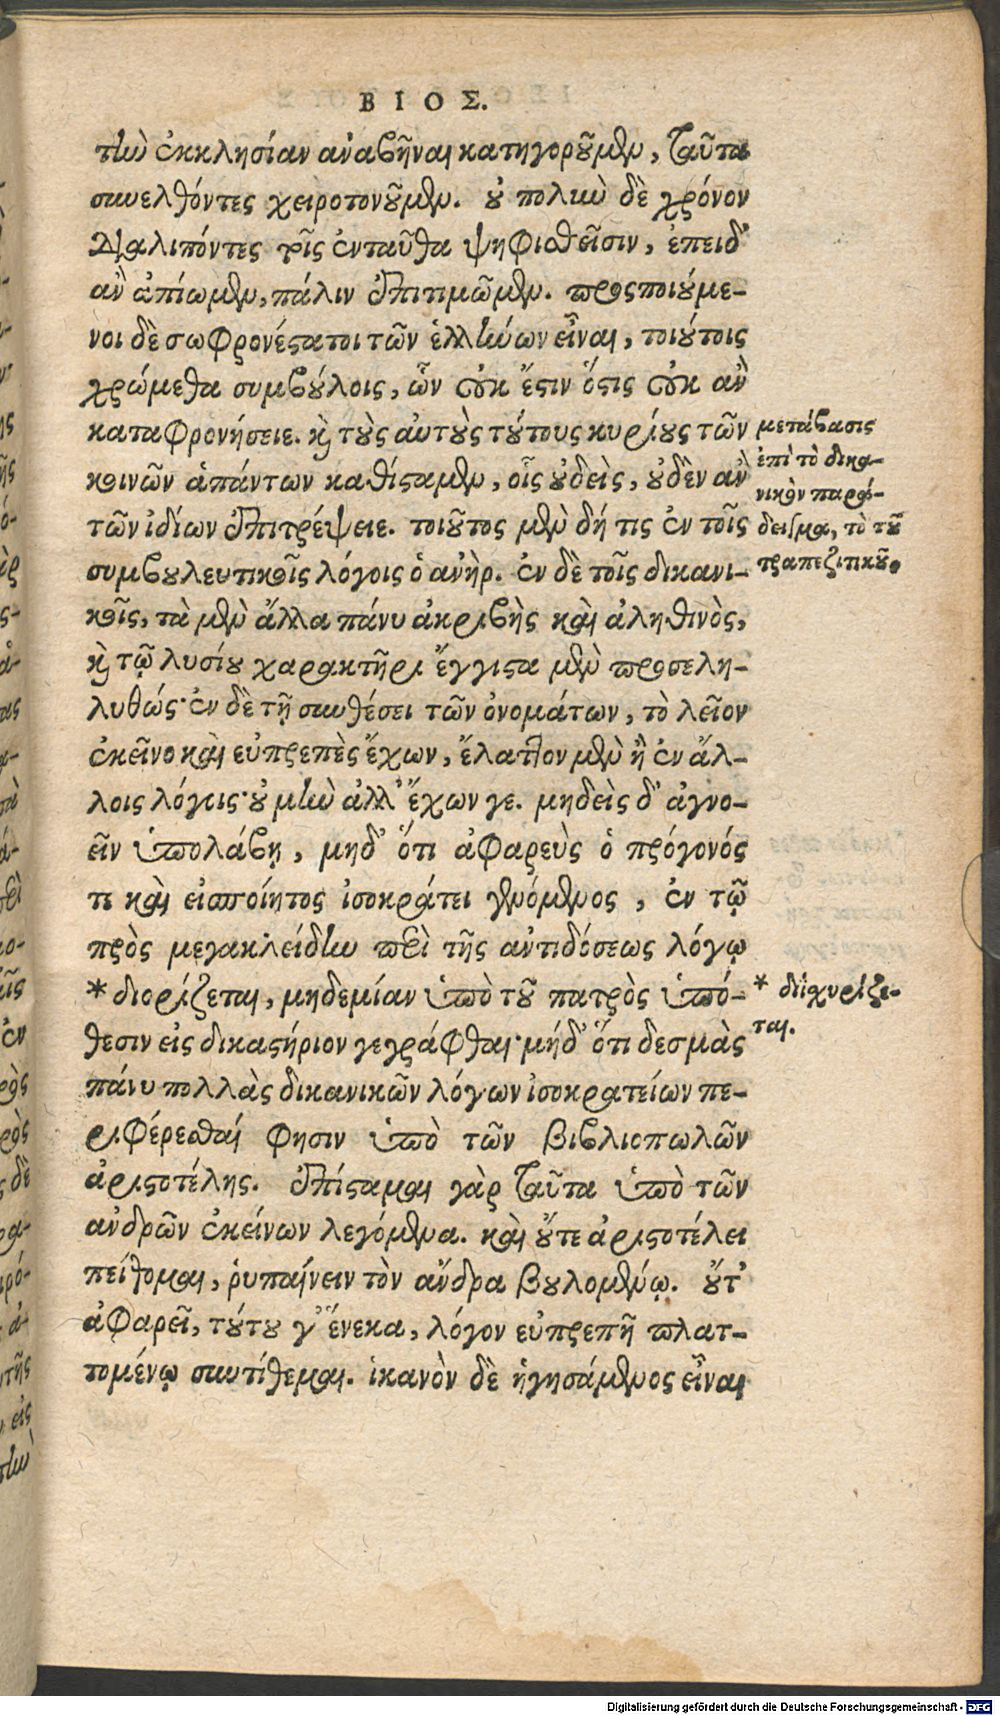 ΒΙΟΣ.
τὴν ἐκκλησίαν ἀναβῆναι κατηγοροῦμεν, ταῦτα
συνελθόντες χειροτονοῦμεν. οὐ πολὺν δὲ χρόνον
διαλιπόντες τοῖς ἐνταῦθα ψηφισθεῖσιν, ἐπειδ᾽
ἂν ἀπίωμεν, πάλιν ἐπιτιμῶμεν. προςποιούμε-
νοι δὲ σωφρονέστατοι τῶν ἑλλήνων εἶναι, τοιούτοις
χρώμεθα συμβούλοις, ὧν οὐκ ἔστιν ὅστις οὐκ ἂν
καταφρονήσειε. καὶ τοὺς αὐτοὺς τούτους κυρίους τῶν
κοινῶν ἁπάντων καθίσταμεν, οἷς οὐδεὶς, οὐδὲν ἂν
τῶν ἰδίων ἐπιτρέψειε. τοιοῦτος μὲν δή τις ἐν τοῖς
συμβουλευτικοῖς λόγοις ὁ ἀνήρ. ἐν δὲ τοῖς δικανι-
κοῖς, τὰ μὲν ἄλλα πάνυ ἀκριβὴς καὶ ἀληθινὸς,
καὶ τῷ λυσίου χαρακτῆρι ἔγγιστα μὲν προσελη-
λυθώς· ἐν δὲ τῇ συνθέσει τῶν ὀνομάτων, τὸ λεῖον
ἐκεῖνο καὶ εὐπρεπὲς ἔχων, ἔλαττον μὲν ἢ ἐν ἄλ-
λοις λόγοις· οὐ μὴν ἀλλ᾽ ἔχων γε. μηδεὶς δ᾽ ἀγνο-
εῖν ὑπολάβῃ, μηδ᾽ ὅτι ἀφαρεὺς ὁ πρόγονός
τε καὶ εἰσποίητος ἰσοκράτει γενόμενος, ἐν τῷ
πρὸς μεγακλείδην περὶ τῆς ἀντιδόσεως λόγῳ
* διορίζεται, μηδεμίαν ὑπὸ τοῦ πατρὸς ὑπό-
θεσιν εἰς δικαστήριον γεγράφθαι· μήδ᾽ ὅτι δεσμὰς
πάνυ πολλὰς δικανικῶν λόγων ἰσοκρατείων πε-
ριφέρεσθαί φησιν ὑπὸ τῶν βιβλιοπωλῶν
ἀριστοτέλης. ἐπίσταμαι γὰρ ταῦτα ὑπὸ τῶν
ἀνδρῶν ἐκείνων λεγόμενα. καὶ οὔτε ἀριστοτέλει
πείθομαι, ῥυπαίνειν τὸν ἄνδρα βουλομένῳ. οὔτ᾽
ἀφαρεῖ, τούτου γ᾽ ἕνεκα, λόγον εὐπρεπῆ πλατ-
τομένῳ συντίθεμαι. ἱκανὸν δὲ ἡγησάμενος εἶναι
μετάβασις
ἐπὶ τὸ δικα-
νικὸν παρά-
δειγμα, τὸ τοῦ
τραπεζιτικοῦ.
* διϊσχυρίζε-
ται.
Digitalisierung gefördert durch die Deutsche Forschungsgemeinschaft - DFG